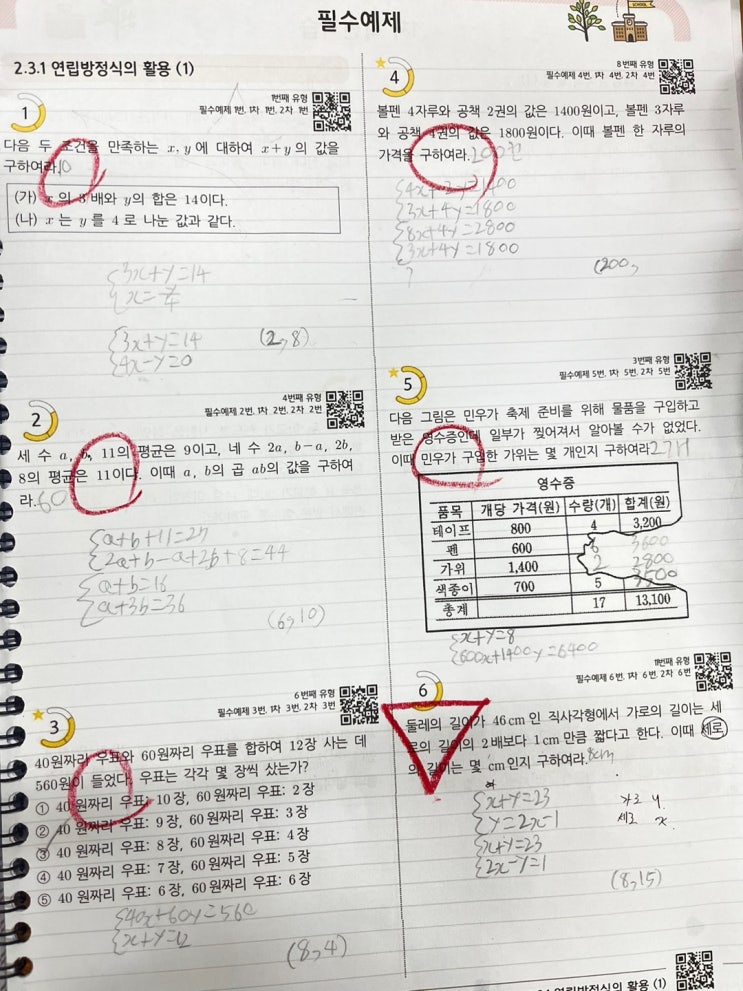 필수예제
SCHOOL
2.3.1 연립방정식의 활용 (1)
1
1번째 유형
필수예제 1번, 1차 1번, 2차 1번
다음 두 조건을 만족하는 x, y 에 대하여 x+y 의 값을
구하여라. 10
(가) x 의 3 배와 y의 합은 14이다.
(나) x 는 y 를 4 로 나눈 값과 같다.
3x+y=14
x=y/4
3x+y=14
4x-y=0
(2,8)
2
4번째 유형
필수예제 2번, 1차 2번, 2차 2번
세 수 a, b, 11의 평균은 9이고, 네 수 2a, b-a, 2b,
8의 평균은 11이다. 이때 a, b의 곱 ab의 값을 구하여
라. 60
a+b+11=27
2a+b-a+2b+8=44
a+b=16
a+3b=36
(6,10)
3
6번째 유형
필수예제 3번, 1차 3번, 2차 3번
40원짜리 우표와 60원짜리 우표를 합하여 12장 사는 데
560원이 들었다. 우표는 각각 몇 장씩 샀는가?
① 40 원짜리 우표: 10 장, 60 원짜리 우표: 2 장
② 40 원짜리 우표: 9 장, 60 원짜리 우표: 3 장
③ 40 원짜리 우표: 8 장, 60 원짜리 우표: 4 장
④ 40 원짜리 우표: 7 장, 60 원짜리 우표: 5 장
⑤ 40 원짜리 우표: 6 장, 60 원짜리 우표: 6 장
40x+60y=560
x+y=12
(8,4)
4
8번째 유형
필수예제 4번, 1차 4번, 2차 4번
볼펜 4자루와 공책 2권의 값은 1400원이고, 볼펜 3자루
와 공책 4권의 값은 1800원이다. 이때 볼펜 한 자루의
가격을 구하여라. 200원
4x+2y=1400
3x+4y=1800
8x+4y=2800
3x+4y=1800
(200,
5
3번째 유형
필수예제 5번, 1차 5번, 2차 5번
다음 그림은 민우가 축제 준비를 위해 물품을 구입하고
받은 영수증인데 일부가 찢어져서 알아볼 수가 없었다.
이때 민우가 구입한 가위는 몇 개인지 구하여라. 2개
영수증
품목 개당 가격(원) 수량(개) 합계(원)
테이프 800 4 3,200
펜 600 6 3600
가위 1,400 2 2800
색종이 700 5 3500
총계 17 13,100
x+y=8
600x+1400y=6400
6
11번째 유형
필수예제 6번, 1차 6번, 2차 6번
둘레의 길이가 46 cm 인 직사각형에서 가로의 길이는 세
로의 길이의 2 배보다 1 cm 만큼 짧다고 한다. 이때 세로
의 길이는 몇 cm인지 구하여라. 8cm
x+y=23
y=2x-1
x+y=23
2x-y=1
가로 y
세로 x
(8,15)
연립방정식의 활용 (1)